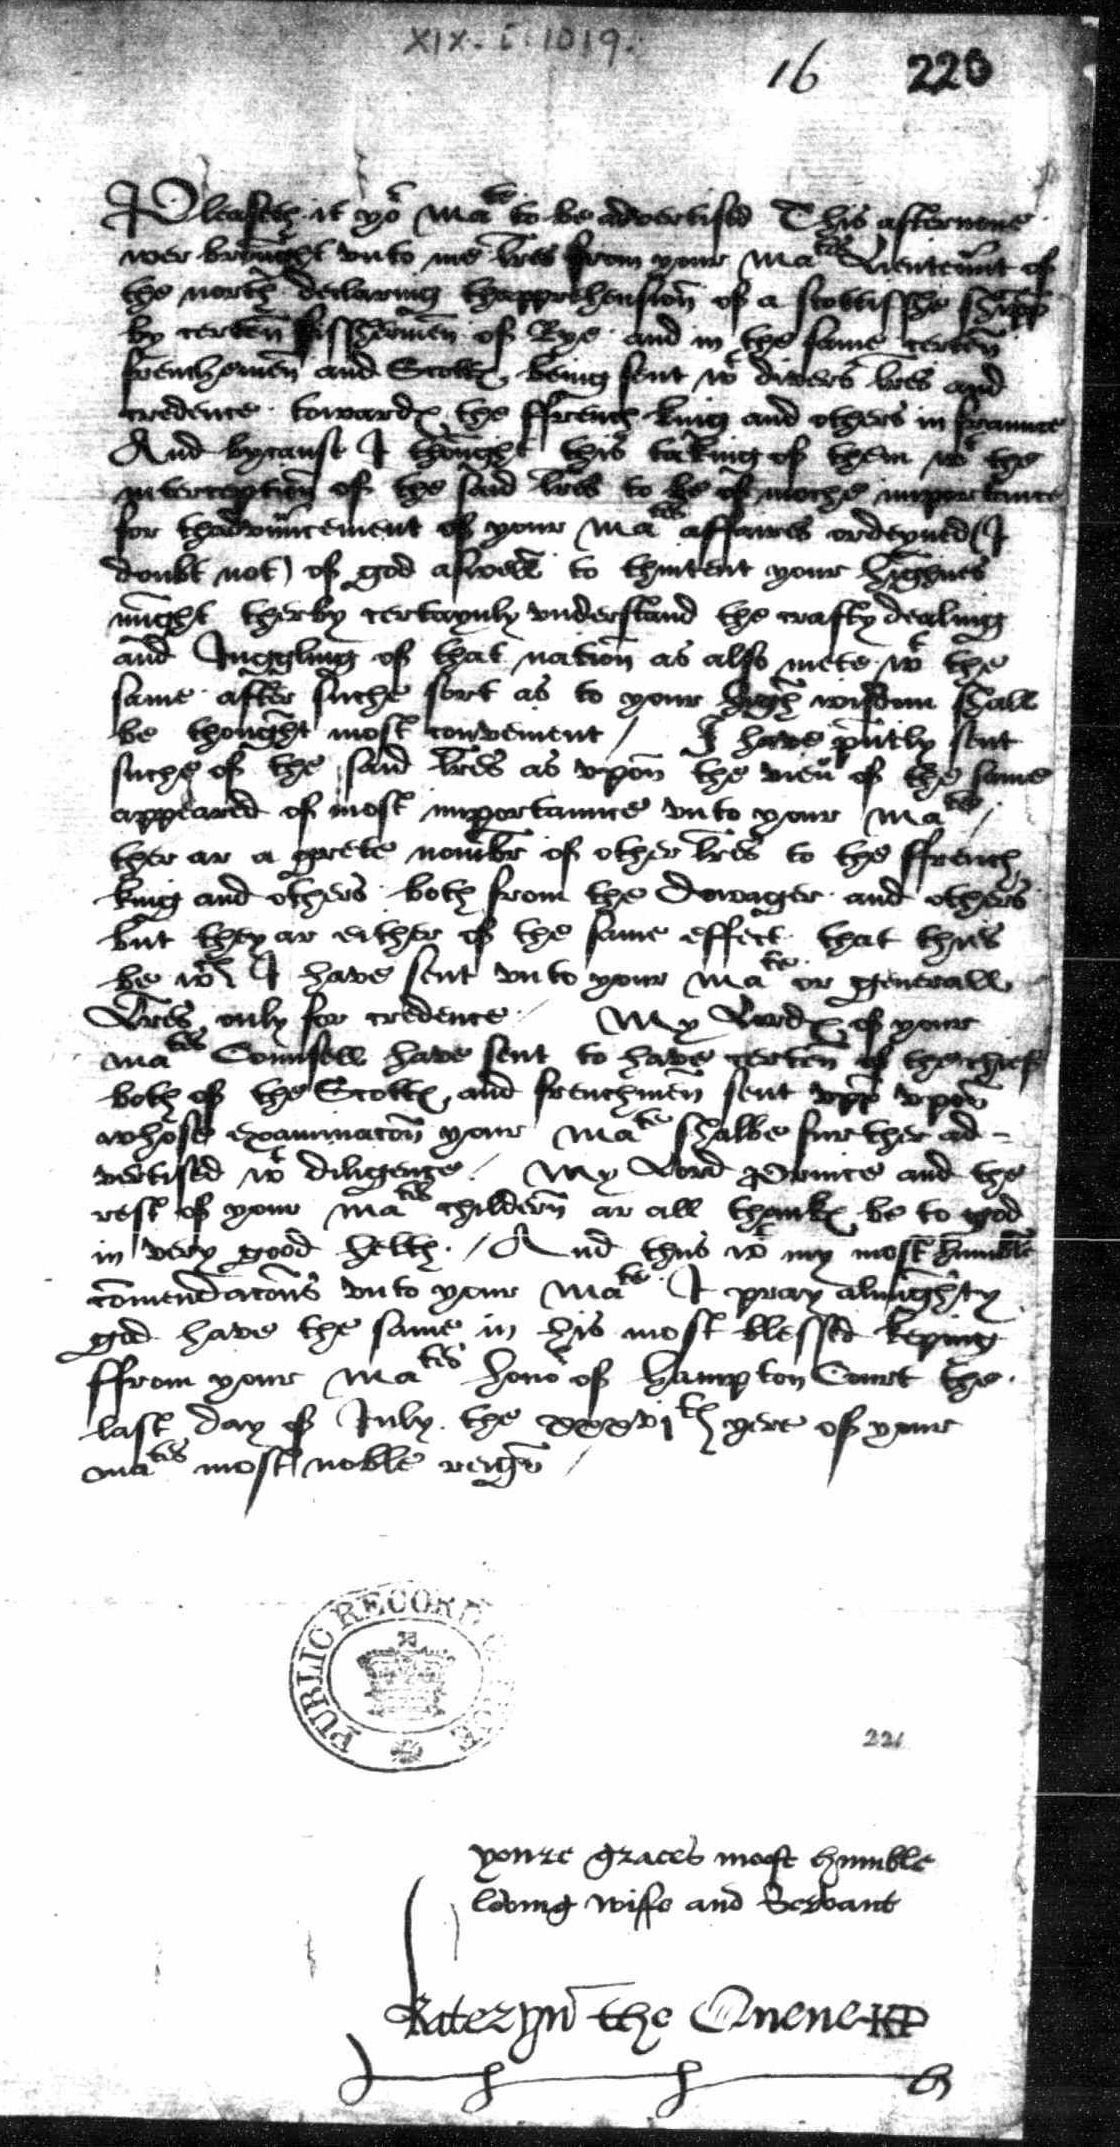 XIX. i. 1019.
16 220
Pleaseth it yor Mate to be advertised This afternone
wer brought unto me lres from your Mates Lieutennt of
the north declaring thapprehension of a Scottisshe shipp
by certen fisshermen of Rye and in the same certen
frenchemen and Scottes being sent wt divers lres and
credence towardes the ffrench king and others in fraunce
And bycause I thought this taking of them wt the
interception of the said lres to be of moche importaunce
for thadvauncement of your Mates affaires ordeyned (I
doubt not) of god aswell to thintent your highnes
might therby certaynly understand the crafty dealing
and Juggling of that nation as also mete wt the
same after suche sort as to your high wisdom shall
be thought most convenient / I have pntly sent
suche of the said lres as upon the vieu of the same
appeared of most importaunce unto your Mate /
ther ar a grete nombre of other lres to the ffrench
king and others both from the Dowager and others
but they ar either of the same effect that thies
be wch I have sent unto your Mate or generall
Lres only for credence / My Lordes of your
Mates Counsell have sent to have certen of the chief
both of the Scottes and frenchmen sent upp upon
whose examinacon your Mate shalbe further ad-
vertised wt diligence / My Lord Prince and the
rest of your Mates childern ar all thankes be to god
in very good helth. / And thus wt my most humble
comendacons unto your Mate I pray almighty
god have the same in his most blessed keping
ffrom your Mates honor of Hampton Court the
last day of July the xxxvith yere of your
Mates most noble reign /
PUBLIC RECORD OFFICE
221
youre graces moost humble
loving wiffe and Servant
Kateryn the Quene KP